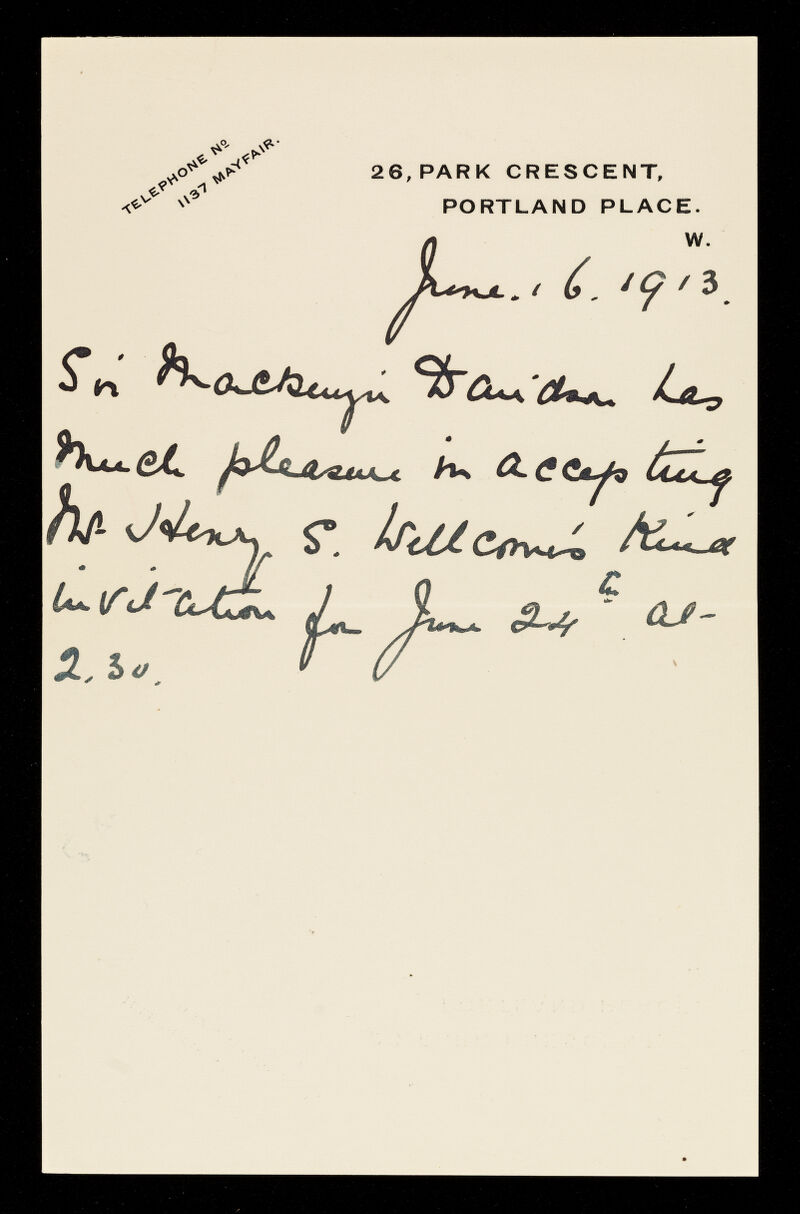 TELEPHONE Nº
1137 MAYFAIR.
26, PARK CRESCENT,
PORTLAND PLACE.
W.
June. 16. 1913.
Sir Mackenzie Davidson has
much pleasure in accepting
Mr Henry S. Wellcome's Kind
invitation for June 24th at
2.30.